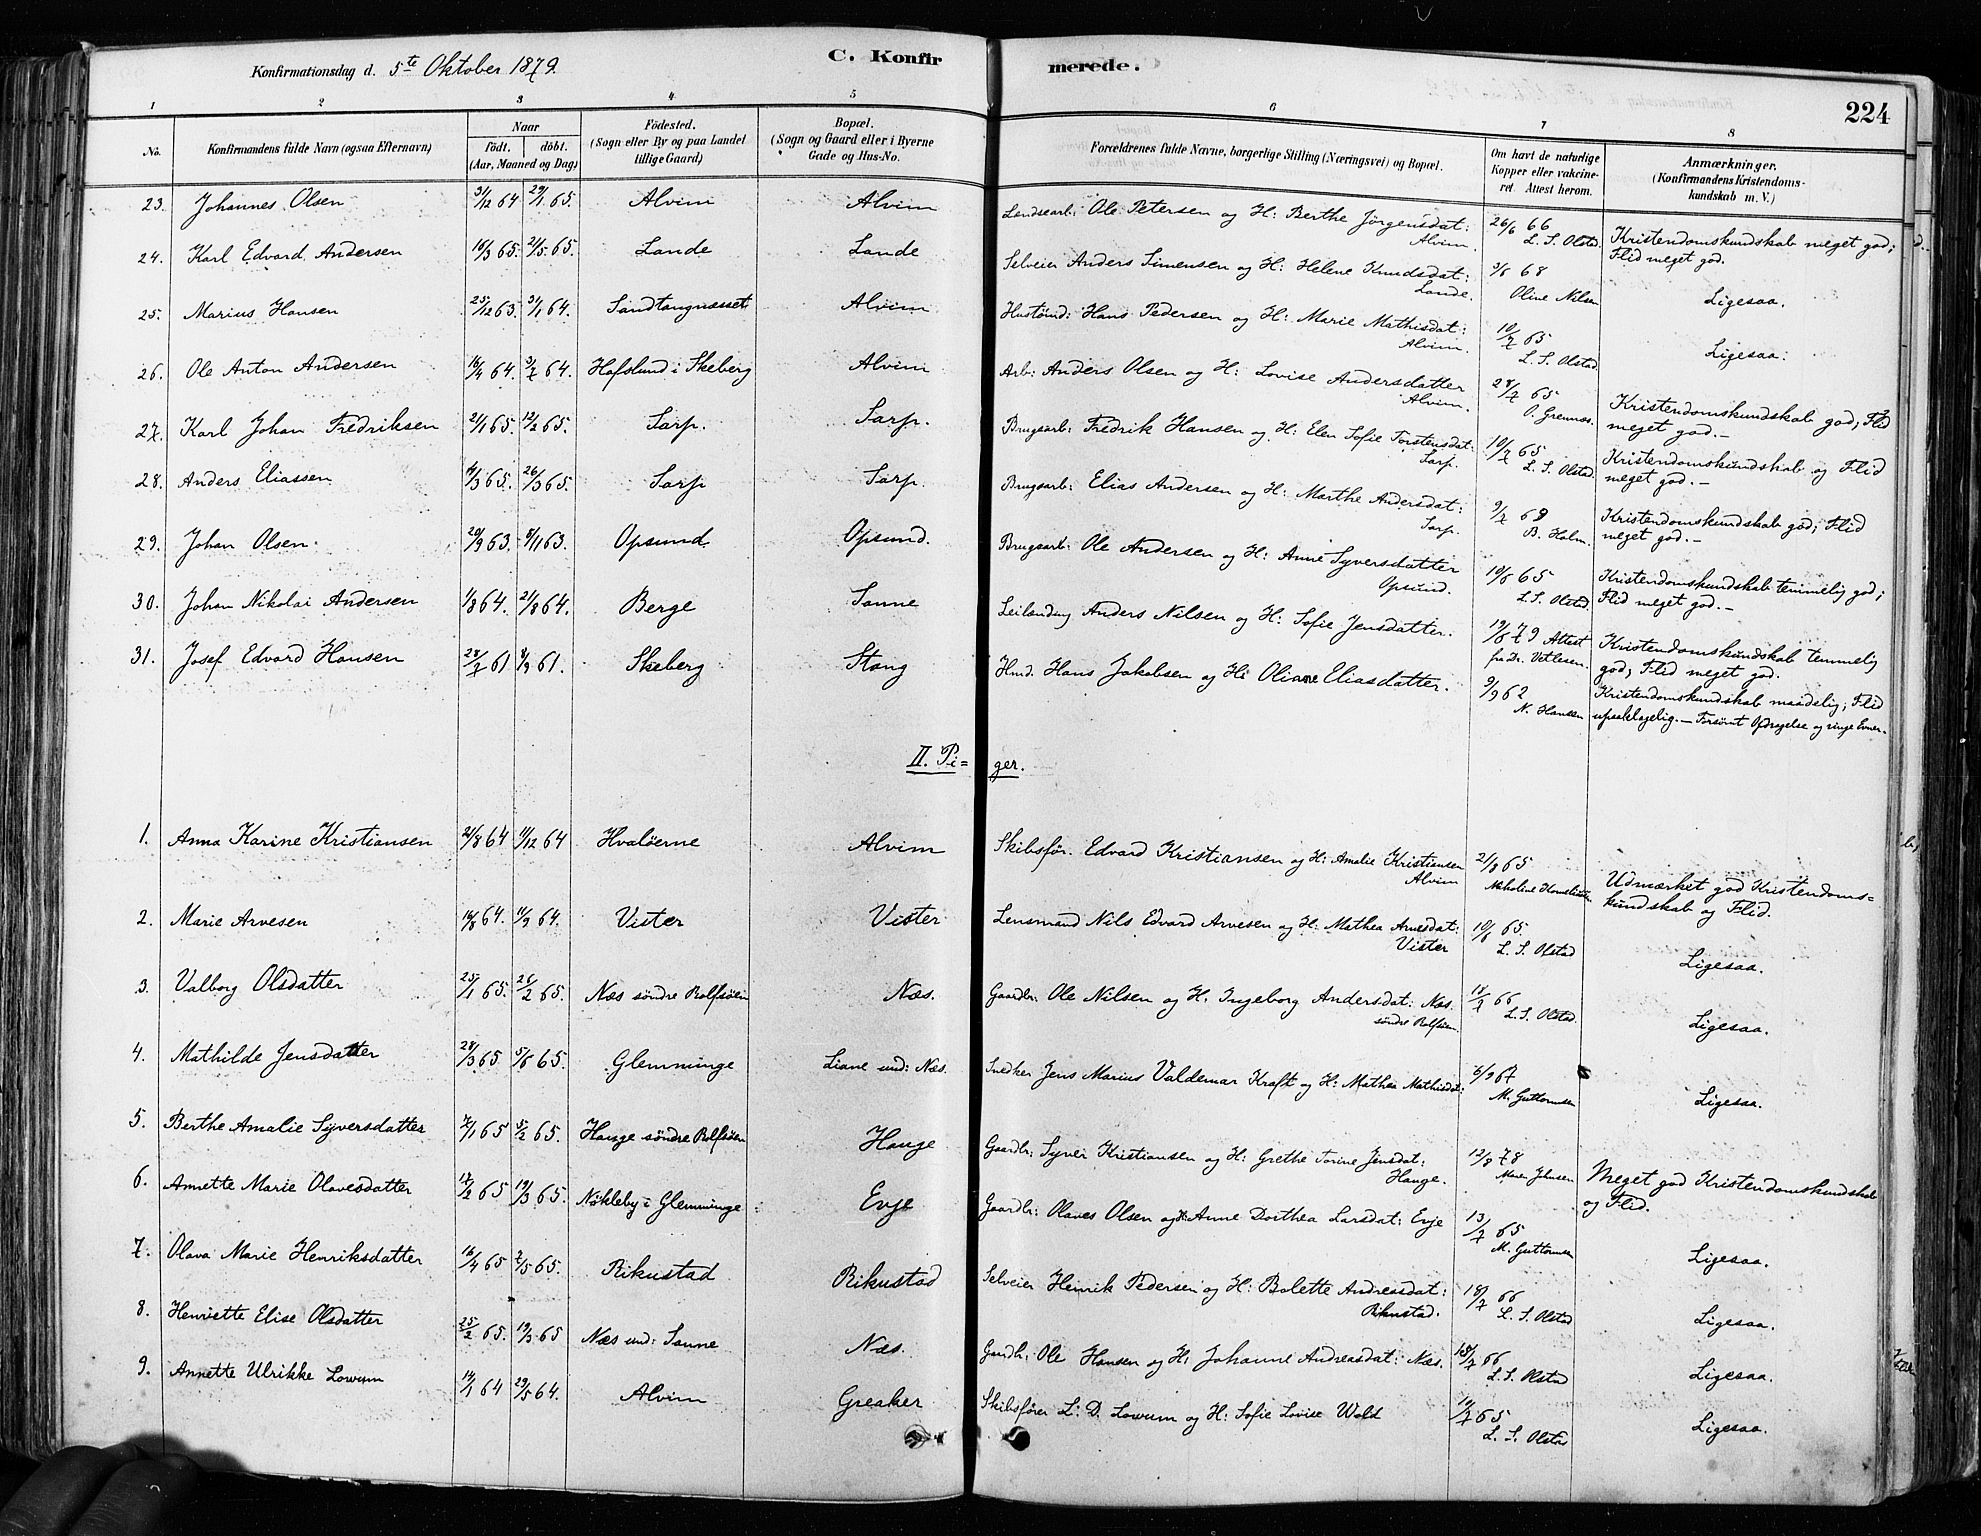 Konfirmationsdag d. 5te Oktober 1879. C. Konfir merede. 224
1 2 3 4 5 6 7 8
No. Konfirmandens fulde Navn (ogsaa Efternavn) Naar født. døbt. (Aar, Maaned og Dag) Fødested. (Sogn eller By og paa Landet tillige Gaard) Bopæl. (Sogn og Gaard eller i Byerne Gade og Hus-No. Forældrenes fulde Navne, borgerlige Stilling (Næringsvei) og Bopæl. Om havt de naturlige Kopper eller vakcineret. Attest herom. Anmærkninger. (Konfirmandens Kristendomskundskab m. V.)
23. Johannes Olsen 31/12 64 29/1 65. Alvim Alvim Landsearb: Ole Petersen og H: Berthe Jörgensdat: Alvim. 26/6 66 L. S. Olstad. Kristendomskundskab meget god; Flid meget god.
24. Karl Edvard Andersen 18/3 65. 21/5 65. Lande Lande Selveier Anders Simensen og H: Helene Knudsdat: Lande. 3/6 68 Oline Nilsen Ligesaa.
25. Marius Hansen 25/12 63. 31/1 64. Sandtangnæsset Alvim Hustömd: Hans Pedersen og H: Marie Mathisdat: Alvim. 10/7 65 L. S. Olstad. Ligesaa:
26. Ole Anton Andersen 16/4 64. 3/7 64. Hafslund i Skeberg Alvim Arb: Anders Olsen og H: Lovise Andersdatter Alvim. 28/7 65 O. Grennes. Kristendomskundskab god; Flid meget god.-
27. Karl Johan Fredriksen 21/1 65. 12/2 65. Sarp. Sarp. Brugsarb: Fredrik Hansen og H: Elen Sofie Torstensdat: Sarp. 10/7 65 L. S. Olstad. Kristendomskundskab og Flid meget god.-
28. Anders Eliassen 4/3 65. 26/3 65. Sarp Sarp. Brugsarb: Elias Andersen og H: Marthe Andersdat: Sarp. 9/7 68 B. Holm. Kristendomskundskab god; Flid meget god.-
29. Johan Olsen. 20/9 63. 8/11 63. Opsund. Opsund. Brugsarb: Ole Andersen og H: Anne Syversdatter Opsund. 10/6 65 L. S. Olstad. Kristendomskundskab temmelig god; Flid meget god.-
30. Johan Nikolai Andersen 1/8 64. 21/8 64. Berge Sanne Leilænding Anders Nilsen og H: Sofie Jensdatter. 19/6 79 Attest fra Dr. Vetlesen. Kristendomskundskab temmelig god; Flid meget god.
31. Josef Edvard Hansen 28/7 61 8/9 61. Skeberg Stang Hmd. Hans Jakobsen og H: Oliane Eliasdatter. 9/9 62 N. Hansen Kristendomskundskab maadelig; Flid upaaklagelig.- Forsømt Opdragelse og ringe Evner.
II. Pi= ger.
1. Anna Karine Kristiansen 21/8 64 11/12 64 Hvalöerne Alvim Skibsfør. Edvard Kristiansen og H: Amalie Kristiansen Alvim 21/8 65 Udmærket god Kristendoms= kundskab og Flid.
2. Marie Arvesen 14/8 64. 11/9 64. Vister Vister Lensmand Nils Edvard Arvesen og H: Mathea Arnesdat: Vister 10/6 65. L. S. Olstad Ligesaa.
3. Valborg Olsdatter 25/1 65. 26/2 65. Næs söndre Rolfsöen Næs. Gaardbr: Ole Nilsen og H. Ingeborg Andersdat: Næs. söndre Rolfsöen. 18/7 66 L. S. Olstad. Ligesaa.
4. Mathilde Jensdatter 28/3 65. 5/6 65. Glemminge Liane und: Næs. Snedker Jens Marius Valdemar Kraft og H: Mathea Mathisdat: 6/9 67 M. Guttormsen Ligesaa.
5. Berthe Amalie Syversdatter 7/1 65 5/2 65. Hauge söndre Rolfsöen Hauge Gaardbr: Syver Kristiansen og H: Grethe Torine Jensdat: Hauge. 12/8 78 Maren Johnsen Meget god Kristendomskundskab og Flid.
6. Annette Marie Olavesdatter 17/2 65 19/3 65. Nökleby i Glemminge Evje Gaardbr: Olaves Olsen og H: Anne Dorthea Larsdat: Evje 13/7 65 M. Guttormsen Ligesaa.
7. Olava Marie Henriksdatter 16/4 65 7/5 65. Rikustad Rikustad Selveier Henrik Pedersen og H: Bolette Andreasdat: Rikustad. 18/7 66 L. S. Olstad Ligesaa.
8. Henriette Elise Olsdatter 25/2 65. 19/3 65 Næs und: Sanne Næs. Gaardbr: Ole Hansen og H: Johanne Andreasdat: Næs. 18/7 66 L. S. Olstad Ligesaa.
9. Annette Ulrikke Lowum 14/1 64 29/5 64. Alvim Greaker Skibsfører L: D. Lowum og H: Sofie Lovise Wold 10/7 65 L. S. Olstad Ligesaa.